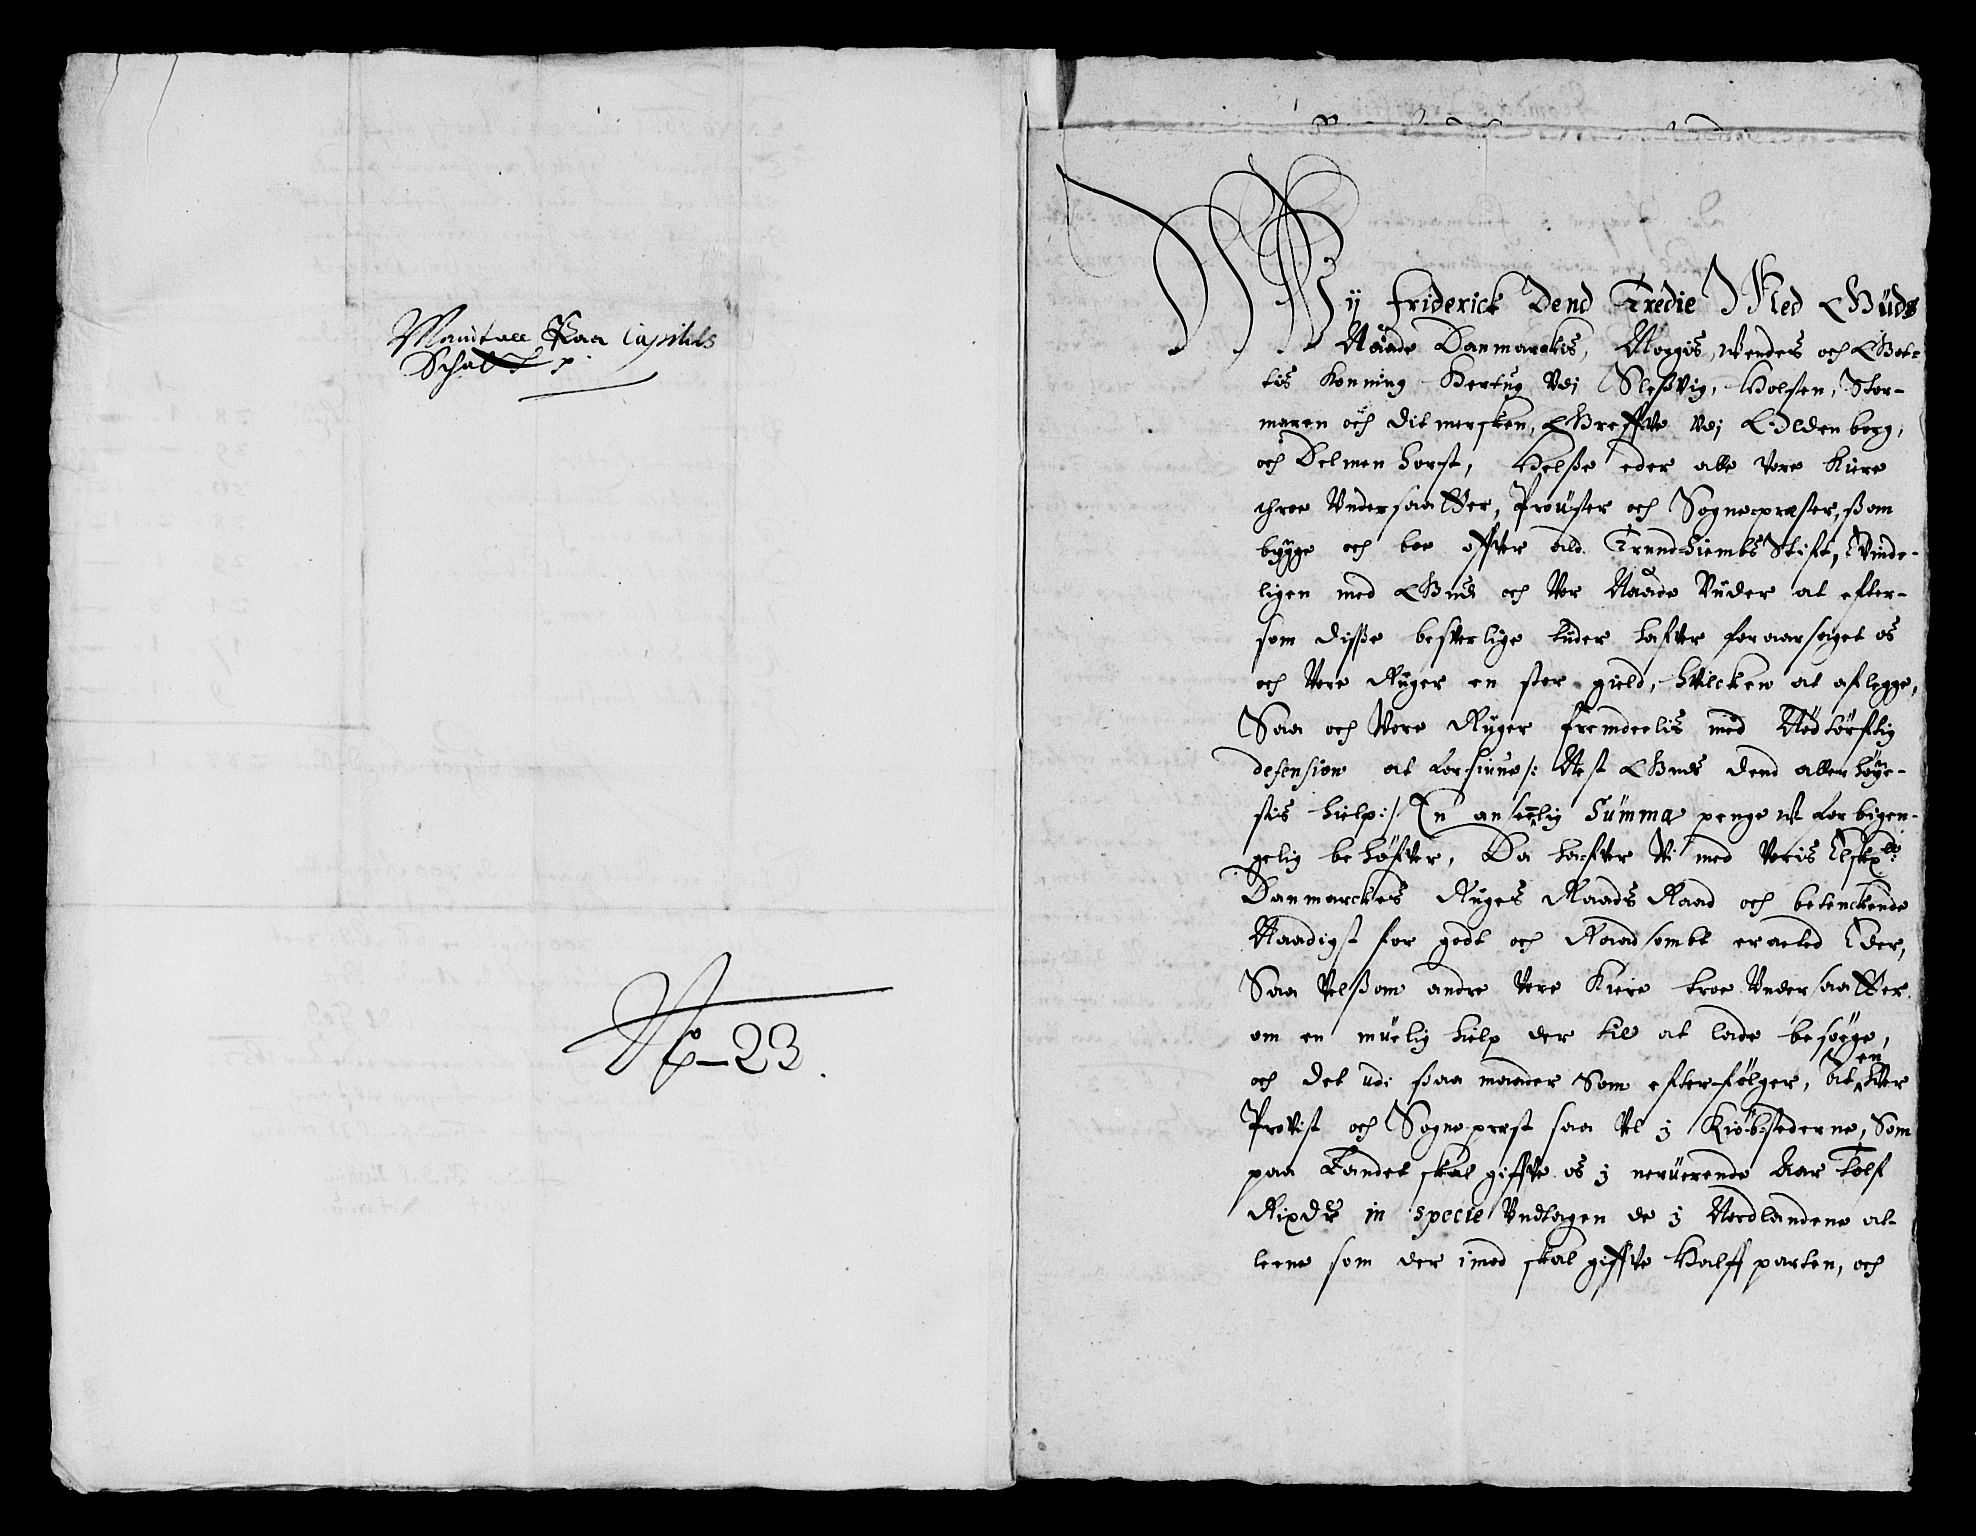 Mantall Paa Capitels
Schatt
No-23.
Wij Friderick Dend Tredie Med Guds
Naade Danmarckis, Norgis, Wendes och Got-
tis Konning Hertug Vdi Sleßvig, Holsten, Stor-
maren och Ditmersken, Greffve Vdi Oldenborg,
och Delmenhorst, Helße eder alle Vore Kiere
throe Vndersaatter, Prouster och Sognepræster, ßom
bygge och boe offver ald Trundhiembs Stift, Vinde-
ligen med Gud och Vor Naade Vider at efter-
som disße besverlige tider hafver foraarsaget os
och Vore Riger en stor gield, hvilcken at aflegge,
Saa och Vore Riger fremdeelis med Nødtørftig
defension at forsiune /: Nest Guds dend allerhøye-
stis hielp :/ En anseelig Summa penge vforbigen-
gelig behøfver, Da hafver Vi med Voris Elskel:
Danmarckes Riges Raads Raad och betenckende
Naadigst for godt och Raadsombt eracted Eder,
Saa Velßom andre Vore Kiere troe Vndersaatter
om en muelig hielp der til at lade besøge,
och det udi ßaa maader Som efterfølger, At en hver
Provist och Sogneprest saa Vel j Kiøbstederne, Som
paa Landet skal giffve os j nerverende Aar Tolf
Rixdr in specie Vndtagen de j Nordlandene al-
leene som der imod skal giffve Halff parten, och